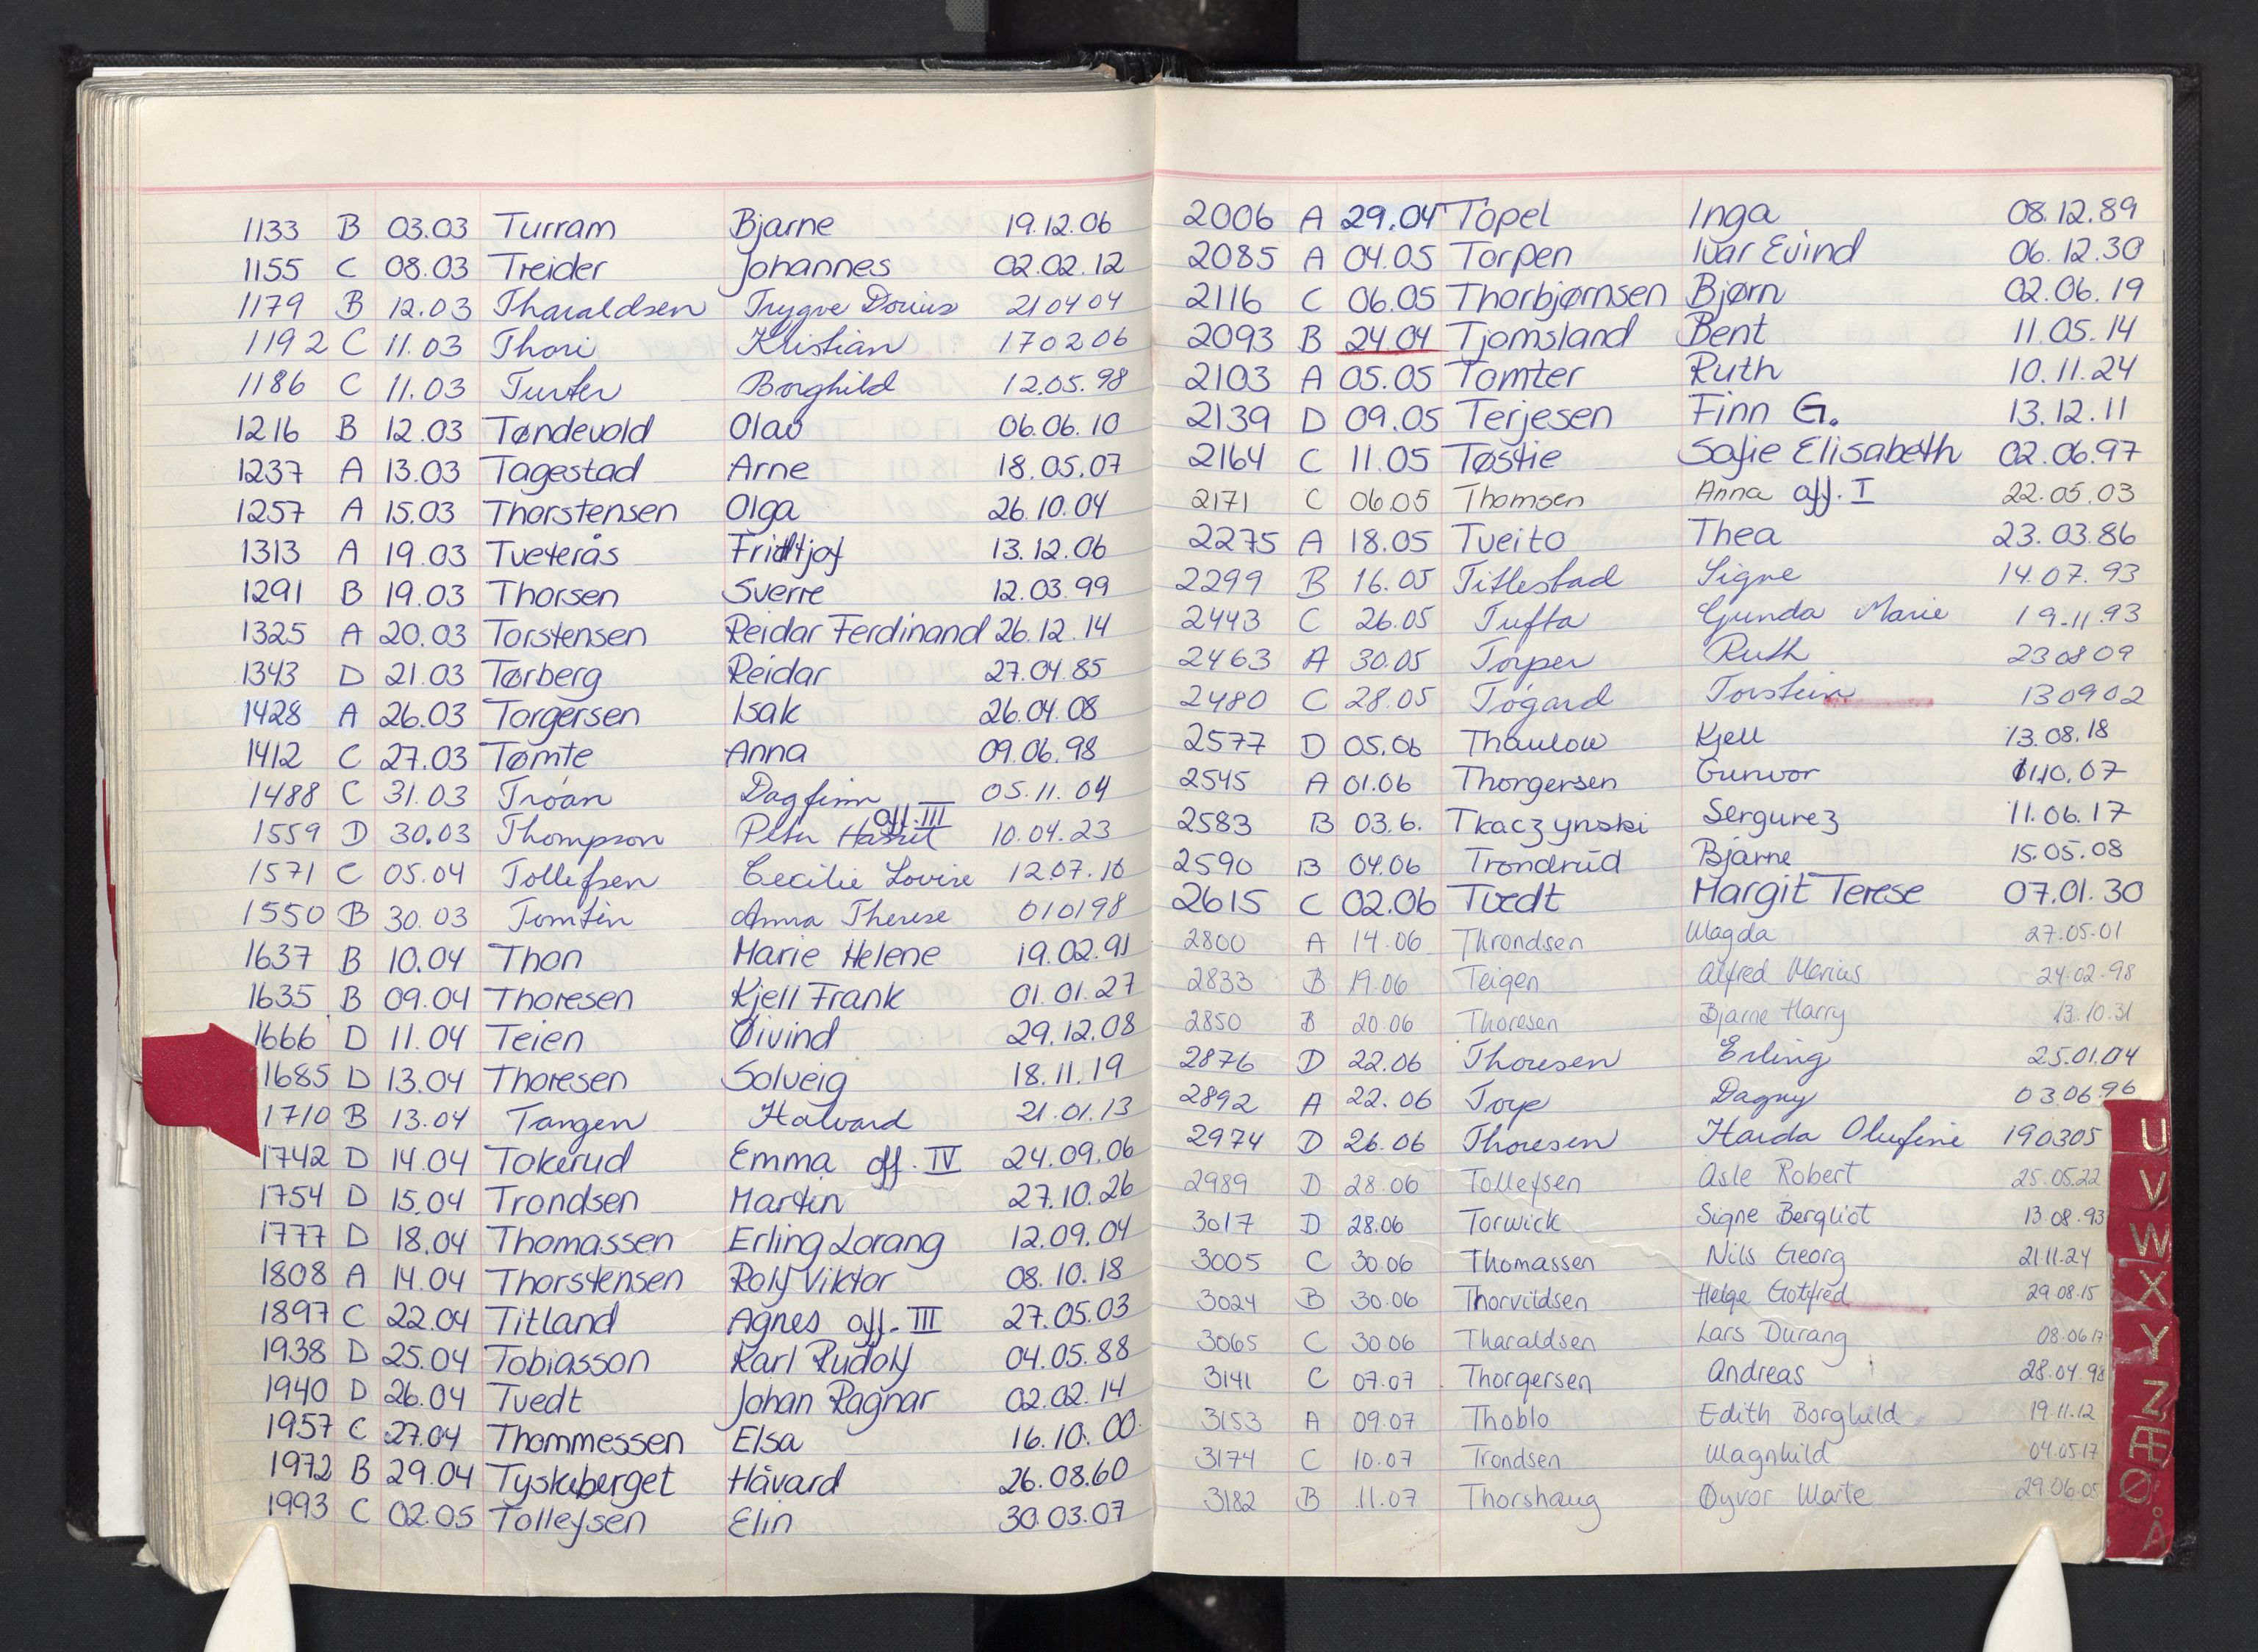 1133 B 03.03 Turram Bjarne 19.12.06
1155 C 08.03 Treider Johannes 02.02.12
1179 B 12.03 Tharaldsen Trygve Dorius 210404
1192 C 11.03 Thori Kristian 170206
1186 C 11.03 Turter Borghild 12.05.98
1216 B 12.03 Tøndevold Olav 06.06.10
1237 A 13.03 Tagestad Arne 18.05.07
1257 A 15.03 Thorstensen Olga 26.10.04
1313 A 19.03 Tveterås Fridtjof 13.12.06
1291 B 19.03 Thorsen Sverre 12.03.99
1325 A 20.03 Torstensen Reidar Ferdinand 26.12.14
1343 D 21.03 Tørberg Reidar 27.04.85
1428 A 26.03 Torgersen Isak 26.04.08
1412 C 27.03 Tømte Anna 09.06.98
1488 C 31.03 Tróan Dagfinn 05.11.04
1559 D 30.03 Thompson Peter off. III 10.04.23
1571 C 05.04 Tollefsen Cecilie Lovise 12.07.10
1550 B 30.03 Tomtin Anna Therese 010198
1637 B 10.04 Thon Marie Helene 19.02.91
1635 B 09.04 Thoresen Kjell Frank 01.01.27
1666 D 11.04 Teien Øivind 29.12.08
1685 D 13.04 Thoresen Solveig 18.11.19
1710 B 13.04 Tangen Halvard 21.01.13
1742 D 14.04 Tokerud Emma off. IV 24.09.06
1754 D 15.04 Trondsen Martin 27.10.26
1777 D 18.04 Thomassen Erling Lorang 12.09.04
1808 A 14.04 Thorstensen Rolf Viktor 08.10.18
1897 C 22.04 Titland Agnes off. III 27.05.03
1938 D 25.04 Tobiasson Karl Rudolf 04.05.88
1940 D 26.04 Tvedt Johan Ragnar 02.02.14
1957 C 27.04 Thommessen Elsa 16.10.00
1972 B 29.04 Tyskeberget Håvard 26.08.60
1993 C 02.05 Tollefsen Elin 30.03.07
2006 A 29.04 Topel Inga 08.12.89
2085 A 04.05 Torpen Ivar Evind 06.12.30
2116 C 06.05 Thorbjørnsen Bjørn 02.06.19
2093 B 24.04 Tjomsland Bent 11.05.14
2103 A 05.05 Tomter Ruth 10.11.24
2139 D 09.05 Terjesen Finn G. 13.12.11
2164 C 11.05 Tøstie Sofie Elisabeth 02.06.97
2171 C 06.05 Thomsen Anna off. I 22.05.03
2275 A 18.05 Tveito Thea 23.03.86
2299 B 16.05 Titlestad Signe 14.07.93
2443 C 26.05 Tufta Gunda Marie 19.11.93
2463 A 30.05 Torper Ruth 230809
2480 C 28.05 Togard Torstein 130902
2577 D 05.06 Thaulow Kjell 13.08.18
2545 A 01.06 Thorgersen Gunvor 01.10.07
2583 B 03.6. Tkaczynski Sergurez 11.06.17
2590 B 04.06 Trondrud Bjarne 15.05.08
2615 C 02.06 Tvedt Margit Terese 07.01.30
2800 A 14.06 Throndsen Magda 27.05.01
2833 B 19.06 Teigen Alfred Marius 24.02.98
2850 B 20.06 Thoresen Bjarne Harry 13.10.31
2876 D 22.06 Thoresen Erling 25.01.04
2892 A 22.06 Torp Dagny 03.06.96
2974 D 26.06 Thoresen Harda Olufine 190305
2989 D 28.06 Tollefsen Asle Robert 25.05.22
3017 D 28.06 Torwick Signe Bergliot 13.08.93
3005 C 30.06 Thomassen Nils Georg 21.11.24
3024 B 30.06 Thorvildsen Helge Gotfred 29.08.15
3065 C 30.06 Tharaldsen Lars Durang 08.06 17
3141 C 07.07 Thorgersen Andreas 28.04.98
3153 A 09.07 Thoblo Edith Borghild 19.11.12
3174 C 10.07 Trondsen Magnhild 04.05.17
3182 B 11.07 Thorshaug Øyvor Marte 29.06.05
U
V
W
X
Y
Z
Æ
Ø
Å